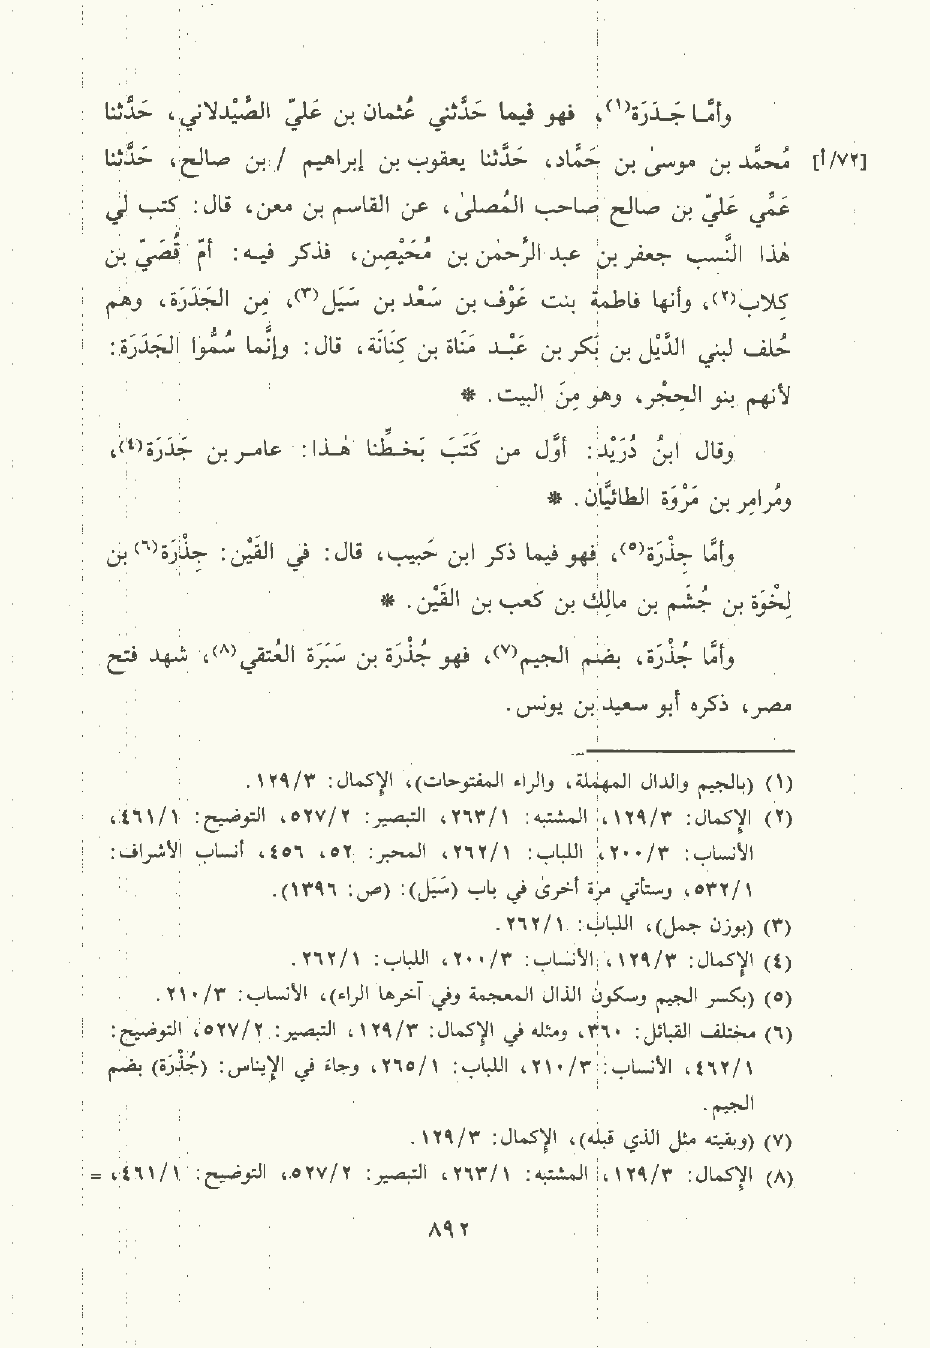 وأمَّا جَـدَرَة(١)، فهو فيما حَدَّثني عُثمان بن عَليّ الصَّيْدلاني، حَدَّثنا
[٧٢/أ] مُحمَّد بن موسىٰ بن حَمَّاد، حَدَّثنا يعقوب بن إبراهيم /بن صالح، حَدَّثنا
عَمِّي عَليّ بن صالح صاحب المُصلىٰ، عن القاسم بن معن، قال: كتب لي
هٰذا النَّسب جعفر بن عبد الرَّحمٰن بن مُحَيْصِن، فذكر فيـه: أمّ قُصَيّ بن
كِلاب(٢)، وأنها فاطمة بنت عَوْف بن سَعْد بن سَيَل(٣)، مِن الجَدَرَة، وهم
حُلف لبني الدِّيْل بن بَكر بن عَبْـد مَنَاة بن كِنَانَة، قال: وإنَّما سُمُّوا الجَدَرَة:
لأنهم بنو الحِجْر، وهو مِنَ البيت. *
وقال ابنُ دُرَيْد: أوَّل من كَتَبَ بَخـطِّنا هٰـذا: عامـر بن جَدَرَة(٤)،
ومُرامِر بن مَرْوَة الطائيَّان. *
وأمَّا جِذْرَة(٥)، فهو فيما ذكر ابن حَبيب، قال: في القَيْن: جِذْرَة(٦) بن
لِخْوَة بن جُشَم بن مالِك بن كعب بن القَيْن. *
وأمَّا جُذْرَة، بضم الجيم(٧)، فهو جُذْرَة بن سَبَرَة العُتقي(٨)، شهد فتح
مصر، ذكره أبو سعيد بن يونس.
(١) (بالجيم والدال المهملة، والراء المفتوحات)، الإكمال: ١٢٩/٣.
(٢) الإكمال: ١٢٩/٣، المشتبه: ٢٦٣/١، التبصير: ٥٢٧/٢، التوضيح: ٤٦١/١،
الأنساب: ٢٠٠/٣، اللباب: ٢٦٢/١، المحبر: ٥٢، ٤٥٦، أنساب الأشراف:
٥٣٢/١، وستأتي مرة أخرىٰ في باب (سَيَل): (ص: ١٣٩٦).
(٣) (بوزن جمل)، اللباب: ٢٦٢/١.
(٤) الإكمال: ١٢٩/٣، الأنساب: ٢٠٠/٣، اللباب: ٢٦٢/١.
(٥) (بكسر الجيم وسكون الذال المعجمة وفي آخرها الراء)، الأنساب: ٢١٠/٣.
(٦) مختلف القبائل: ٣٦٠، ومثله في الإكمال: ١٢٩/٣، التبصير: ٥٢٧/٢، التوضيح:
٤٦٢/١، الأنساب: ٢١٠/٣، اللباب: ٢٦٥/١، وجاء في الإيناس: (جُذْرَة) بضم
الجيم.
(٧) (وبقيته مثل الذي قبله)، الإكمال: ١٢٩/٣.
(٨) الإكمال: ١٢٩/٣، المشتبه: ٢٦٣/١، التبصير: ٥٢٧/٢، التوضيح: ٤٦١/١، =
٨٩٢